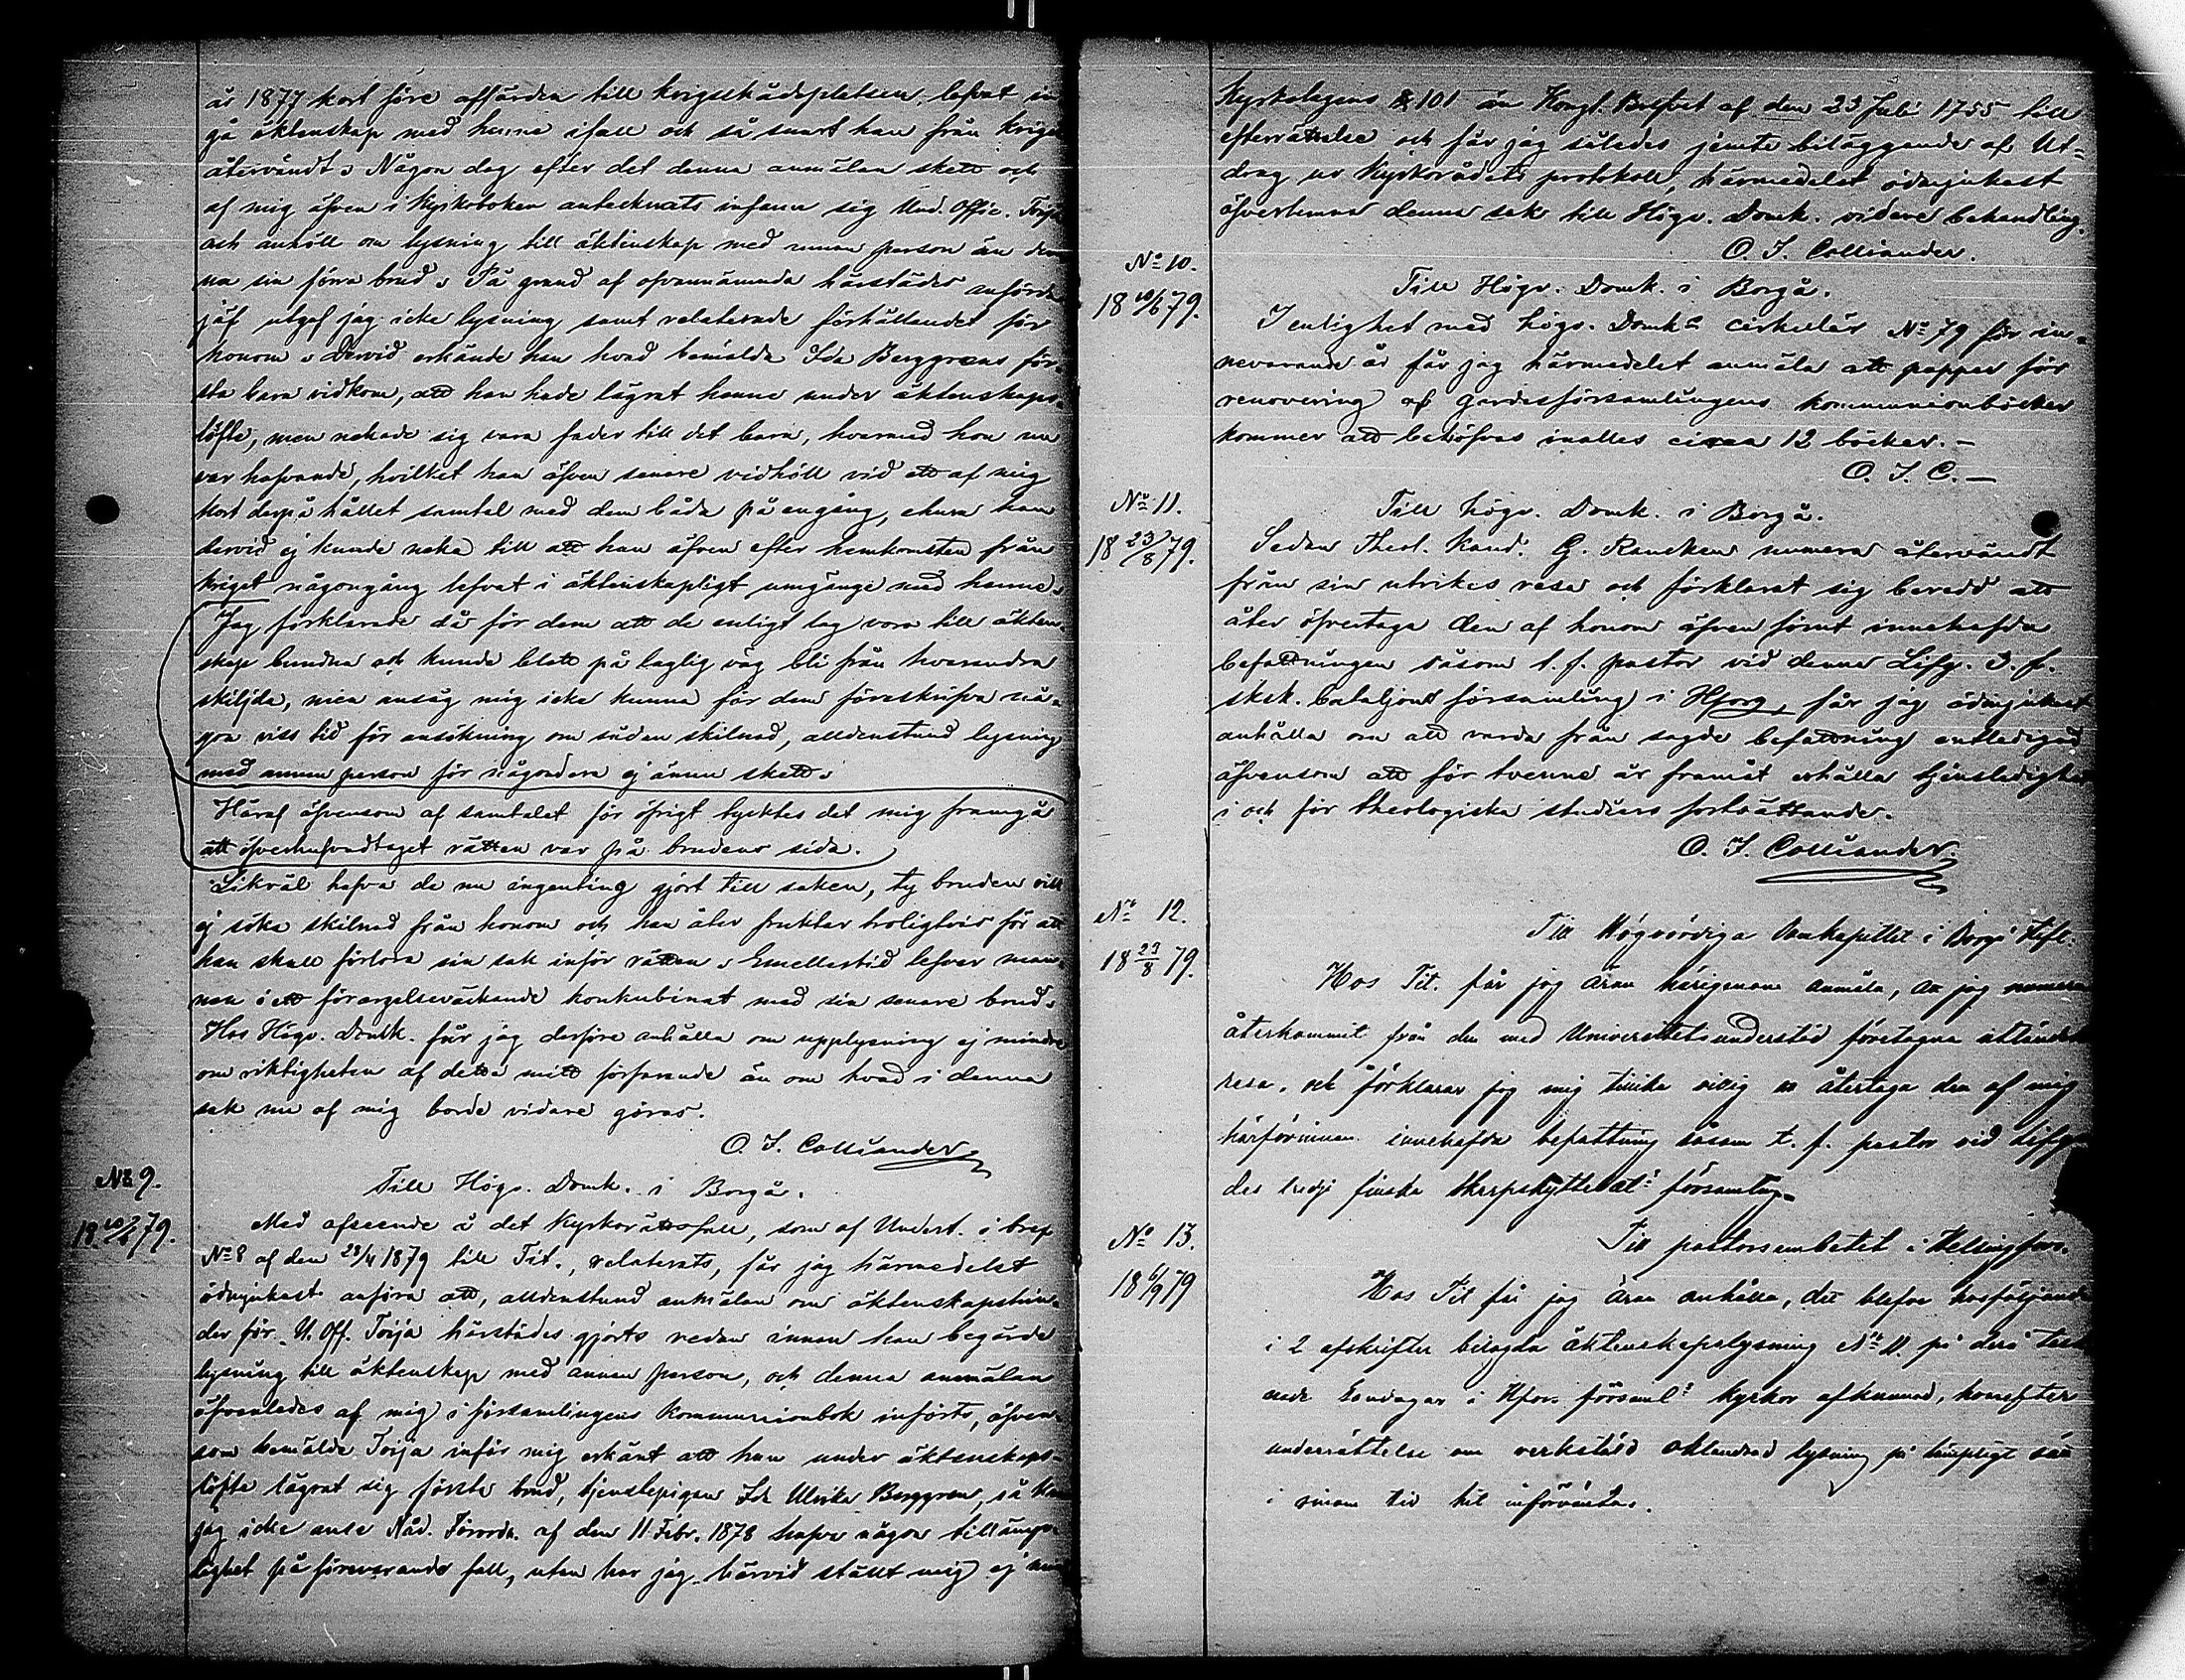 år 1877 kort före affärden till krigsskådeplatsen, lofvat in
gå äktenskap med henne ifall och så snart han från kriget
återvändt. Någon dag efter det denna anmälan skett och
af mig äfven i Kyrkoboken antecknats infann sig Und. Offic. Toija
och anhöll om lysning till äktenskap med annan person än den
na sin förra brud. På grund af ofvannämnda härstädes anförda
jäf utgaf jag icke lysning samt relaterade förhållandet för
honom. Dervid erkände han hvad bemälda Ida Berggrens för-
sta barn vidkom, att han hade lägrat henne under äktenskaps-
löfte, men nekade sig vara fader till det barn, hvarmed hon nu
var hafvande, hvilket han äfven senare vidhöll vid ett af mig
kort derpå hållet samtal med dem båda på engång, ehuru han
dervid ej kunde neka till att han äfven efter hemkomsten från
kriget någongång lefvat i äktenskapligt umgänge med henne.
Jag förklarade då för dem att de enligt lag voro till äkten-
skap bundna och kunde blott på laglig väg bli från hvarandra
skiljda, men ansåg mig icke kunna för dem föreskrifva nå-
gon viss tid för ansökning om sådan skilnad, alldenstund lysning
med annan person för någondera ej ännu skett.
Häraf äfvensom af samtalet för öfrigt tycktes det mig framgå
att öfverhufvudtaget rätten var på brudens sida.
Likväl hafva de nu ingenting gjort till saken, ty bruden vill
ej söka skilnad från honom och han åter fruktar troligtvis för att
han skall förlora sin sak inför rätten. Emellertid lefver man-
nen i ett förargelseväckande konkubinat med sin senare brud.
Hos Högv. Domk. får jag derföre anhålla om upplysning ej mindre
om riktigheten af detta mitt förfarande än om hvad i denna
sak nu af mig borde vidare göras.
O. I. Colliander
No 9.
18 10/6 79.
Till Högv. Domk. i Borgå.
Med afseende å det Kyrkorättsfall, som af Undert. i bref
No 8 af den 28/4 1879 till Tit., relaterats, får jag härmedelst
ödmjukast anföra att, alldenstund anmälan om äktenskapshin-
der för U. Off. Toija härstädes gjorts redan innan han begärde
lysning till äktenskap med annan person, och denna anmälan
äfvenledes af mig i församlingens Kommunionbok införts, äfven-
som bemälde Toija inför mig erkänt att han under äktenskaps-
löfte lägrat sig första brud, tjenstepigan Ida Ulrika Berggren, så kan
jag icke anse Nåd. Förordn. af den 11 Febr. 1878 hafva någon tillämp-
lighet på förevarande fall, utan har jag härvid ställt mig ej
Kyrkolagens § 101 än Kongl. Brefvet af den 23 Juli 1755 till
efterrättelse och får jag således jemte biläggande af Ut-
drag ur Kyrkorådets protokoll, härmedelst ödmjukast
öfverlemna denna sak till Högv. Domk. vidare behandling.
O. I. Colliander.
No 10.
18 10/6 79.
Till Högv. Domk. i Borgå.
I enlighet med högv. Domk:s cirkulär No 79 för in-
nevarande år får jag härmedelst anmäla att papper för
renovering af gardesförsamlingens kommunionböcker
kommer att behöfvas inalles circa 12 böcker.-
O. I. C.-
No 11.
18 23/8 79.
Till högv. Domk. i Borgå.
Sedan Theol. Kand. G. Rancken numera återvändt
från sin utrikes resa och förklarat sig beredd att
åter öfvertaga den af honom äfven förut innehafda
befattningen såsom t. f. pastor vid denna Lifg. 3. f.
sksk. bataljons församling i Hfors, får jag ödmjukast
anhålla om att varda från sagde befattning entledigad
äfvensom att för tvenne år framåt erhålla tjenstledighet
i och för theologiska studiers fortsättande.
O. I. Colliander.
No 12.
18 23/8 79.
Till Högvördiga Domkapitlet i Borgå Stift.
Hos Tit. får jag äran härigenom anmäla, att jag numera
återkommit från den med Universitetsunderstöd företagna utländska
resa, och förklarar jag mig tillika villig att återtaga den af mig
härförinnan innehafda befattning såsom t. f. pastor vid Lifg
des tredje finska Skarpskyttebat:s församling.
No 13.
18 6/9 79
Till pastorsembetet i Helsingfors.
Hos Tit får jag äran anhålla, det blefve hosföljande
i 2 afskrifter bilagda äktenskapslysning No 11. på derå teck
nade Söndagar i Hfors församl:s kyrkor afkunnad, hvarefter
underrättelse om verkstäld oklandrad lysning på lämpligt sätt
i sinom tid hit införväntas.